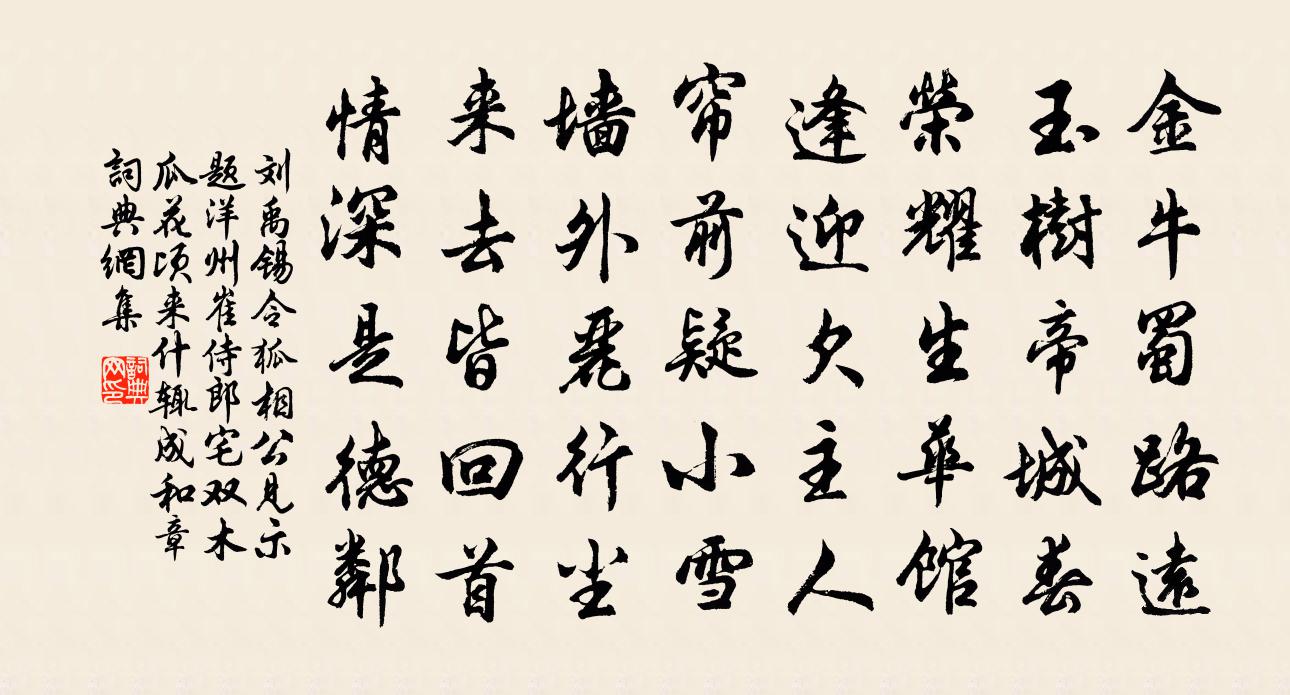 金牛蜀路遠
玉樹帝城春
榮耀生華館
逢迎欠主人
帘前疑小雪
墙外麗行尘
来去皆回首
情深是德鄰
刘禹锡令狐相公见示
题洋州崔侍郎宅双木
瓜花顷来什辄成和章
詞典網集
詞典网印